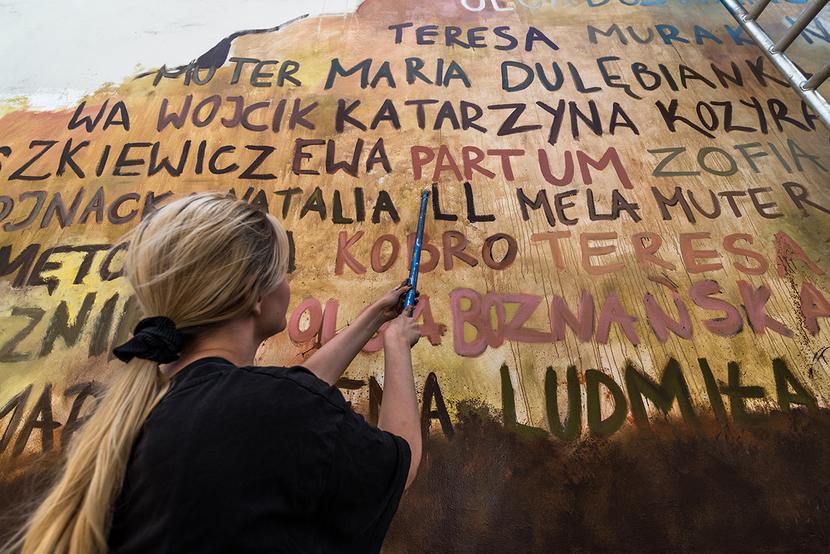 OLGA BOZNAŃ
TERESA MURAK N
MUTER MARIA DULĘBIANK
WA WOJCIK KATARZYNA KOZYRA
SZKIEWICZEWA PARTUM ZOFIA
OJNACK NATALIA LL MELA MUTER
MĘTO KOBRO TERESA
ZNIN OLGA BOZNAŃSKA
MAR NA LUDMIŁA